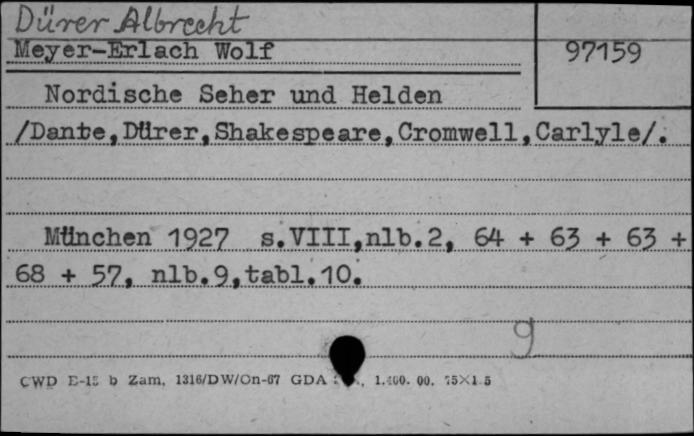 Dürer Albrecht
Meyer-Erlach Wolf 97159
Nordische Seher und Helden
/Dante,Dürer,Shakespeare,Cromwell,Carlyle/.
München 1927 s.VIII,nlb.2, 64 + 63 + 63 +
68 + 57, nlb.9,tabl.10.
9
CWD E-15 b Zam. 1316/DW/On-67 GDA 1.400.00.